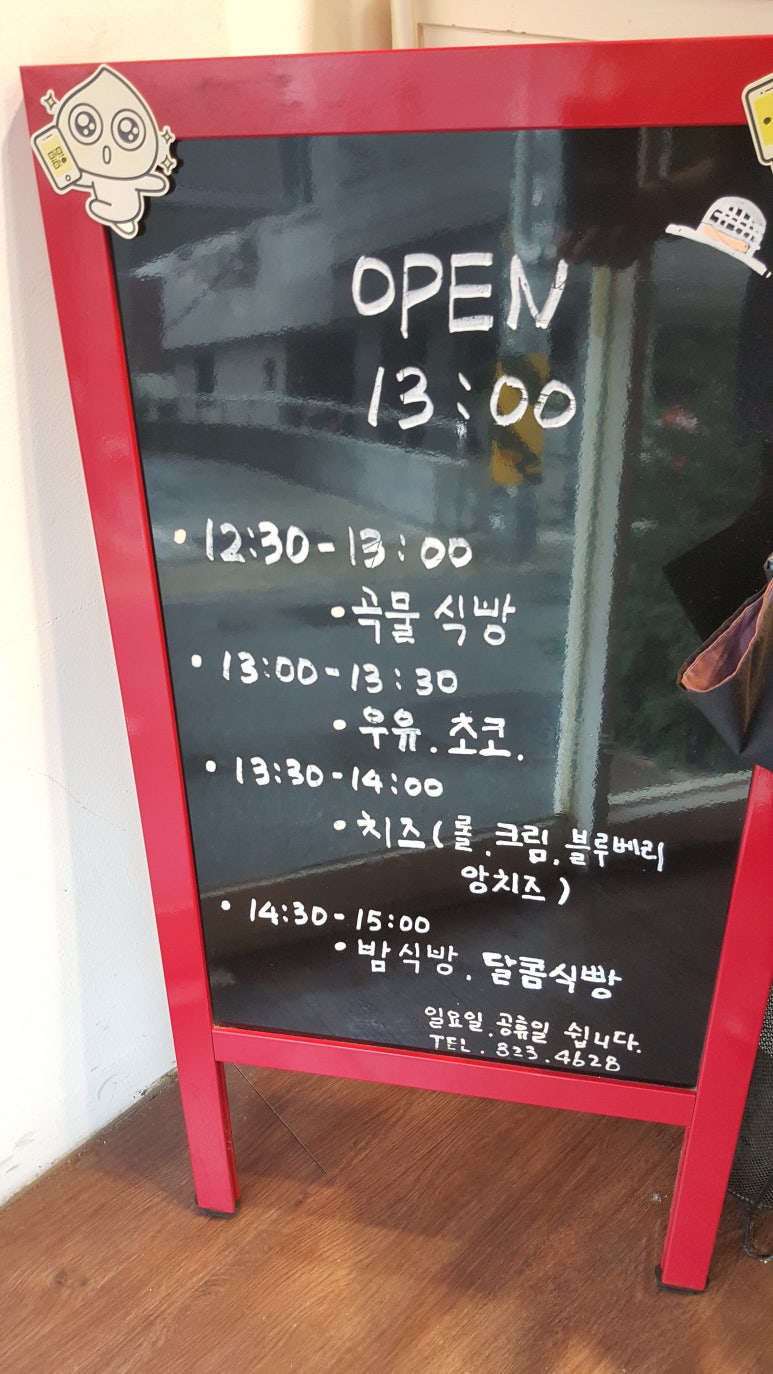 OPEN
13:00
• 12:30 - 13:00
• 곡물 식빵
• 13:00 - 13:30
• 우유. 초코.
• 13:30 - 14:00
• 치즈 (롤. 크림. 블루베리
앙치즈)
• 14:30 - 15:00
• 밤식빵. 달콤식빵
일요일. 공휴일 쉽니다.
TEL. 823.4628